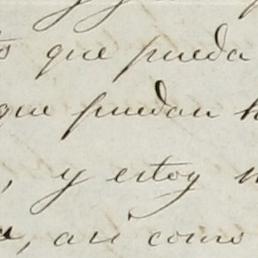 que pueda
que puedan
, y estoy
, así como